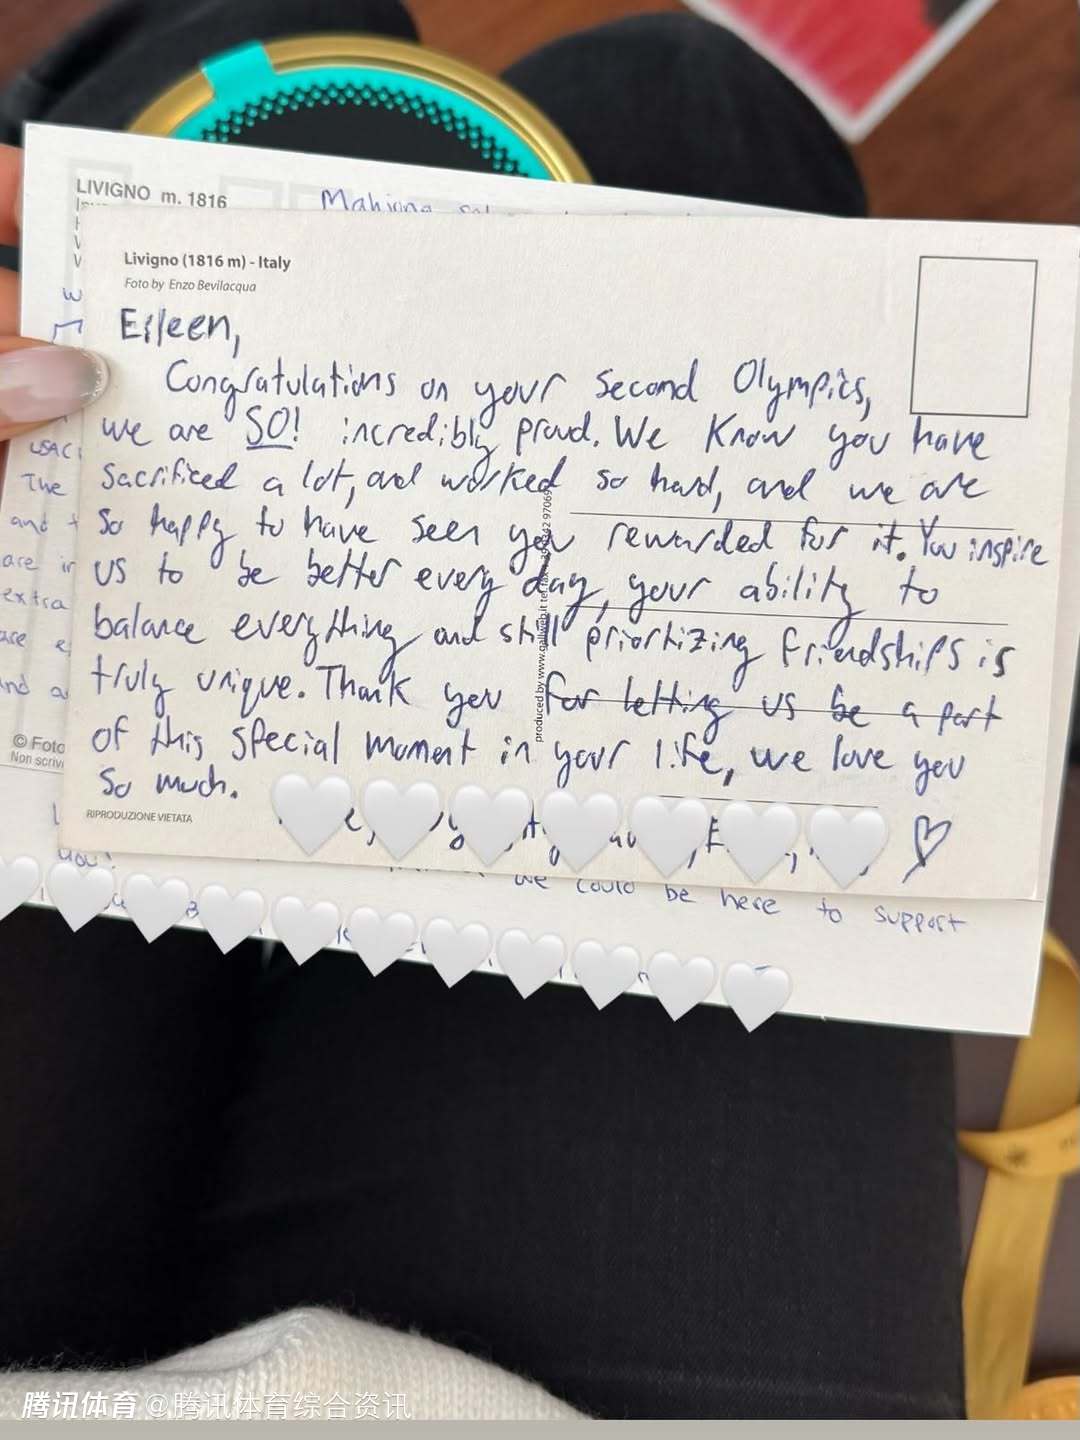 LIVIGNO m. 1816
Mahjong
Livigno (1816 m) - Italy
Foto by Enzo Bevilacqua
Eileen,
Congratulations on your second Olympics,
we are SO! incredibly proud. We know you have
sacrificed a lot, and worked so hard, and we are
so happy to have seen you rewarded for it. You inspire
us to be better every day, your ability to
balance everything and still prioritizing friendships is
truly unique. Thank you for letting us be a part
of this special moment in your life, we love you
so much.
RIPRODUZIONE VIETATA
produced by www.galliweb.it
The
and
are
extra
© Foto
you!
we could be here to support
腾讯体育 @腾讯体育综合资讯